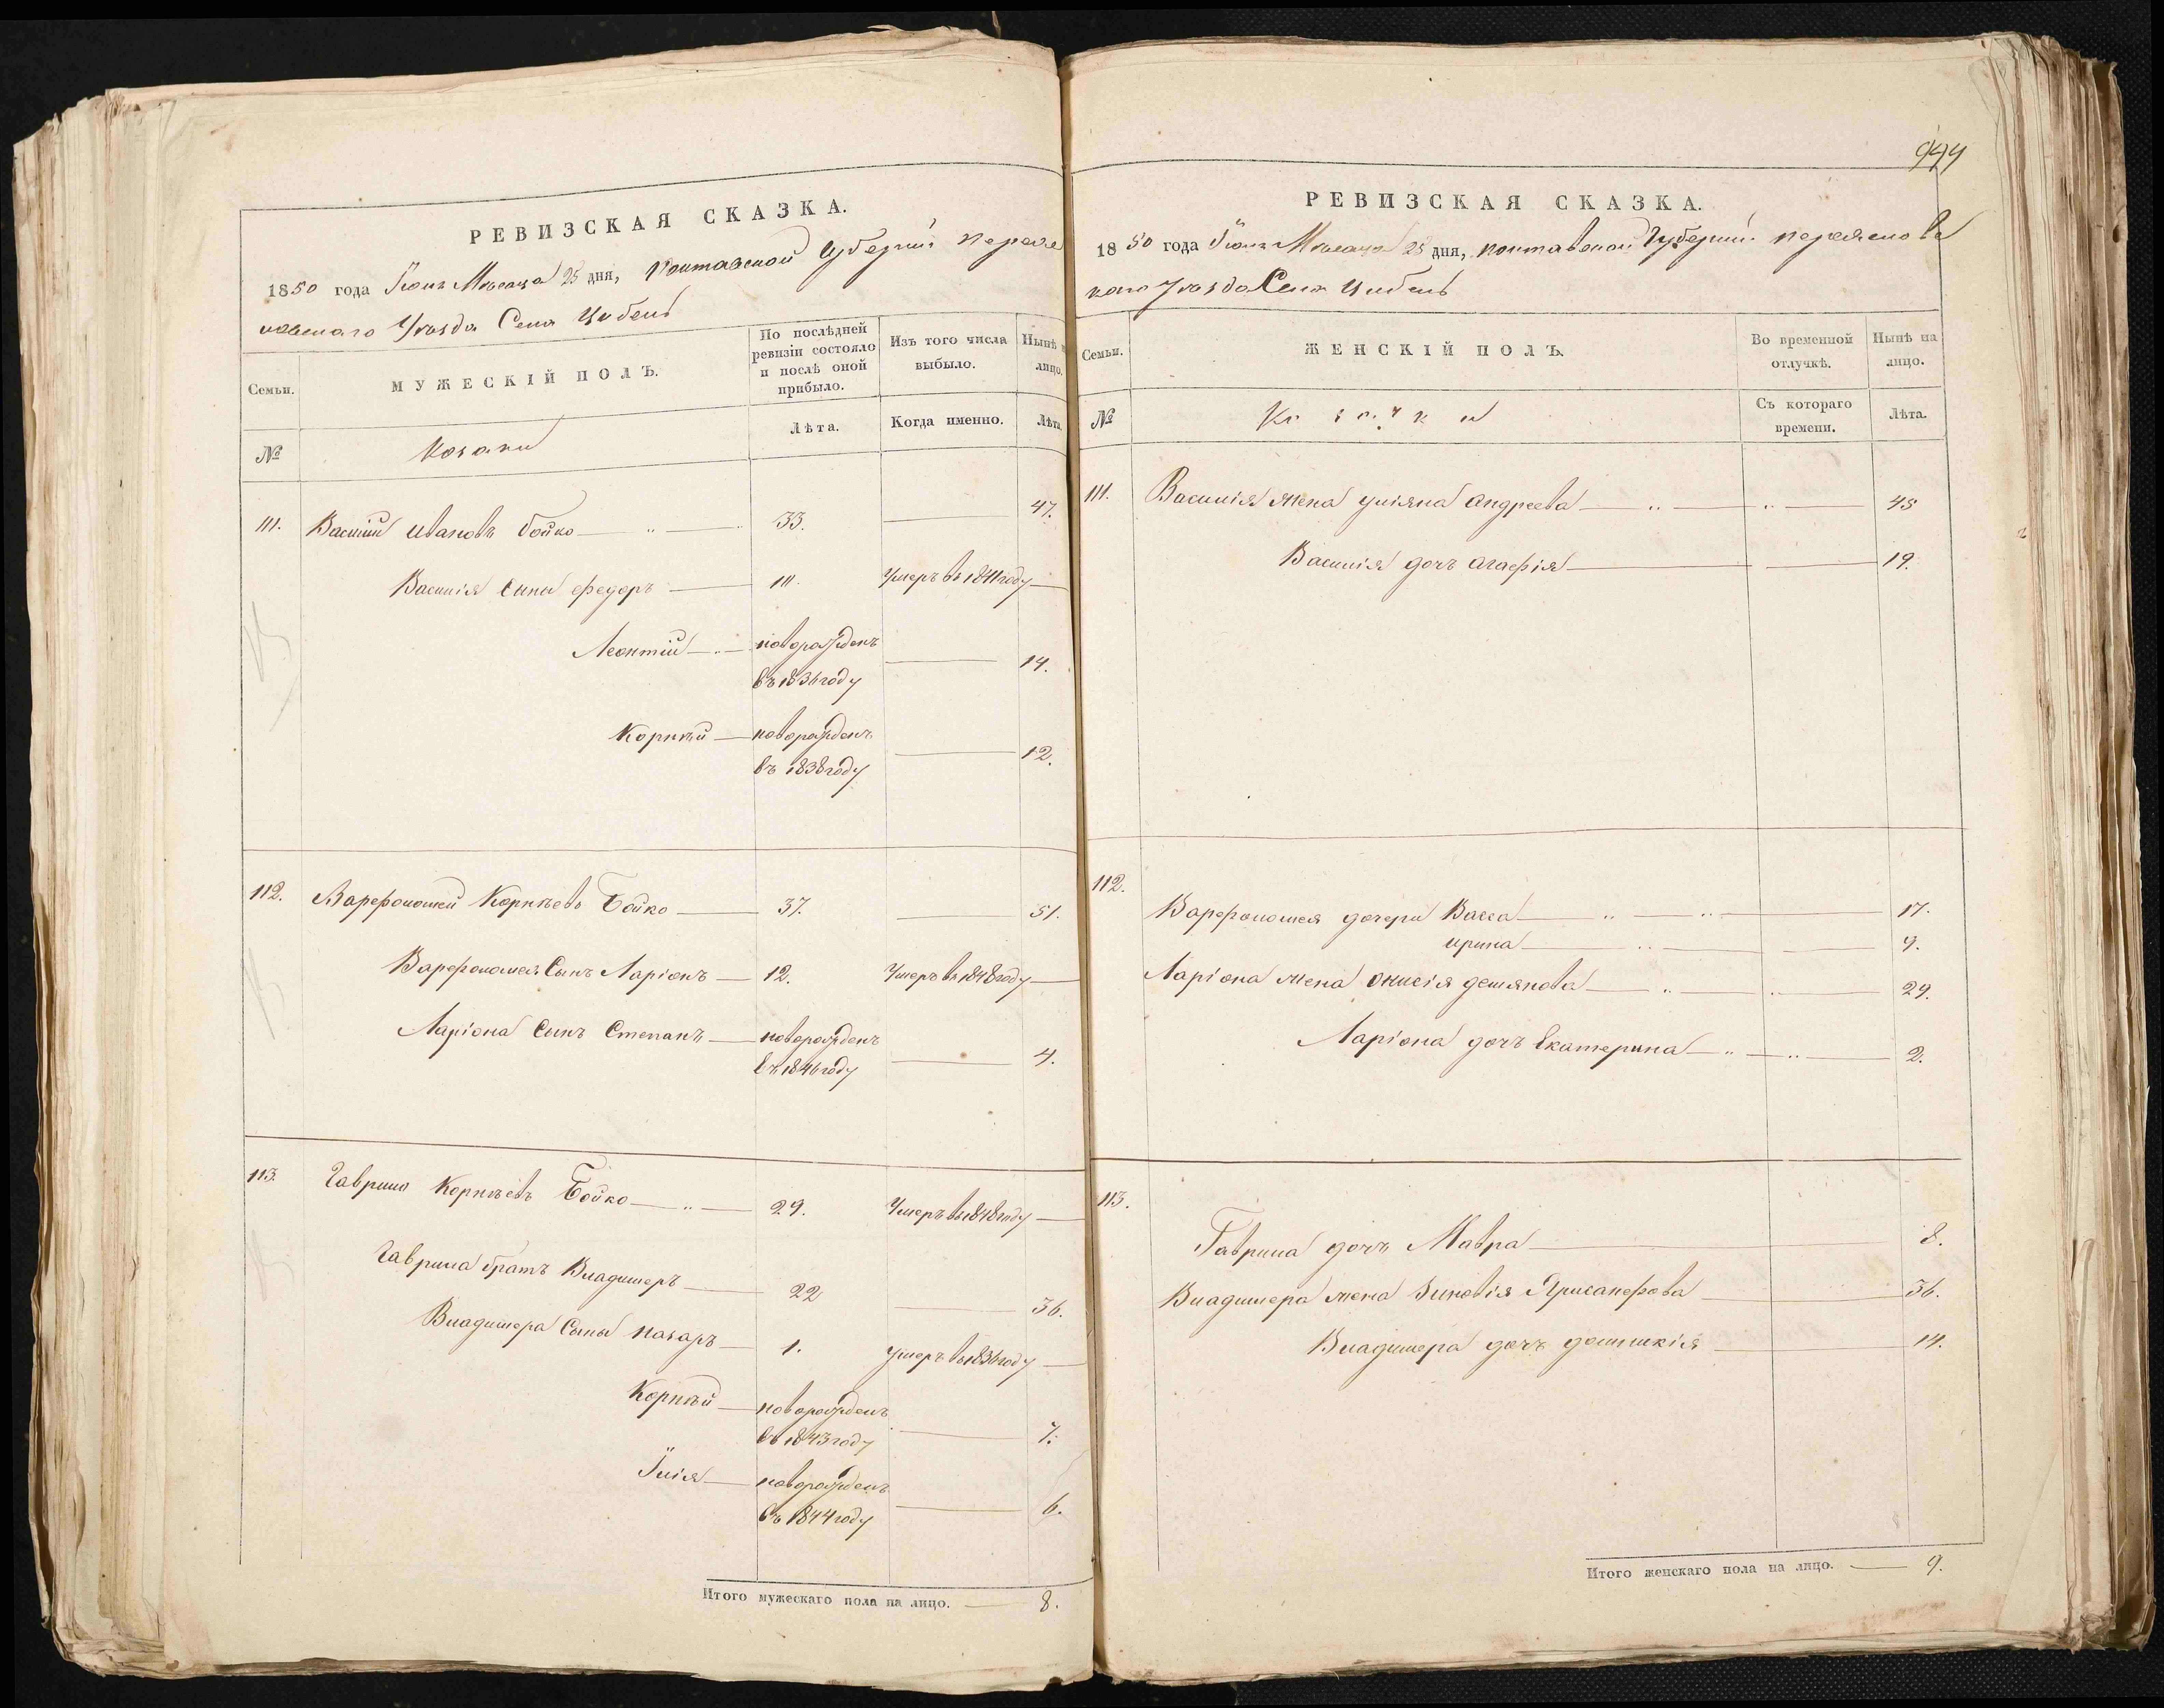 РЕВИЗСКАЯ СКАЗКА.
1850 года Іюнь Мѣсяца 25 дня, Полтавской Губерніи Перея
славскаго Уѣзда Села Цибель
Семьи.
МУЖЕСКІЙ ПОЛЪ.
По послѣдней ревизіи состояло и послѣ оной прибыло.
Изъ того числа выбыло.
Нынѣ на лицо.
№
Козаки
Лѣта.
Когда именно.
Лѣта.
111. Василій Ивановъ Бойко 33. 47.
Василія Сыны Федоръ 111. Умеръ въ 1841 году
Леонтій новорожденъ въ 1836 году 14.
Корнѣй новорожденъ въ 1838 году 12.
112. Варфоломей Корнѣевъ Бойко 37. 51.
Варфоломея Сынъ Ларіонъ 12. Умеръ въ 1848 году
Ларіона Сынъ Степанъ новорожденъ въ 1846 году 4.
113. Гаврило Корнѣевъ Бойко 29. Умеръ въ 1848 году
Гаврила братъ Владимеръ 22 36.
Владимера Сыны Назаръ 1. Умеръ въ 1836 году
Корнѣй новорожденъ въ 1843 году 7.
Ілія новорожденъ въ 1844 году 6.
Итого мужескаго пола на лицо. 8.
944
РЕВИЗСКАЯ СКАЗКА.
1850 года Іюнь Мѣсяца 25 дня, Полтавской Губерніи Переяславс
каго Уѣзда Села Цибель
Семьи.
ЖЕНСКІЙ ПОЛЪ.
Во временной отлучкѣ.
Нынѣ на лицо.
№
Козачки
Съ котораго времени.
Лѣта.
111. Василія жена Уліяна Андреева 45
Василія дочь Агафія 19.
112.
Варфоломея дочери Васса 17.
Ирина 9.
Ларіона жена Онисія Демянова 29.
Ларіона дочь Екатерина 2.
113.
Гаврила дочь Мавра 8.
Владимера жена Зиновія 36.
Владимера дочь Домникія 14.
Итого женскаго пола на лицо. 9.